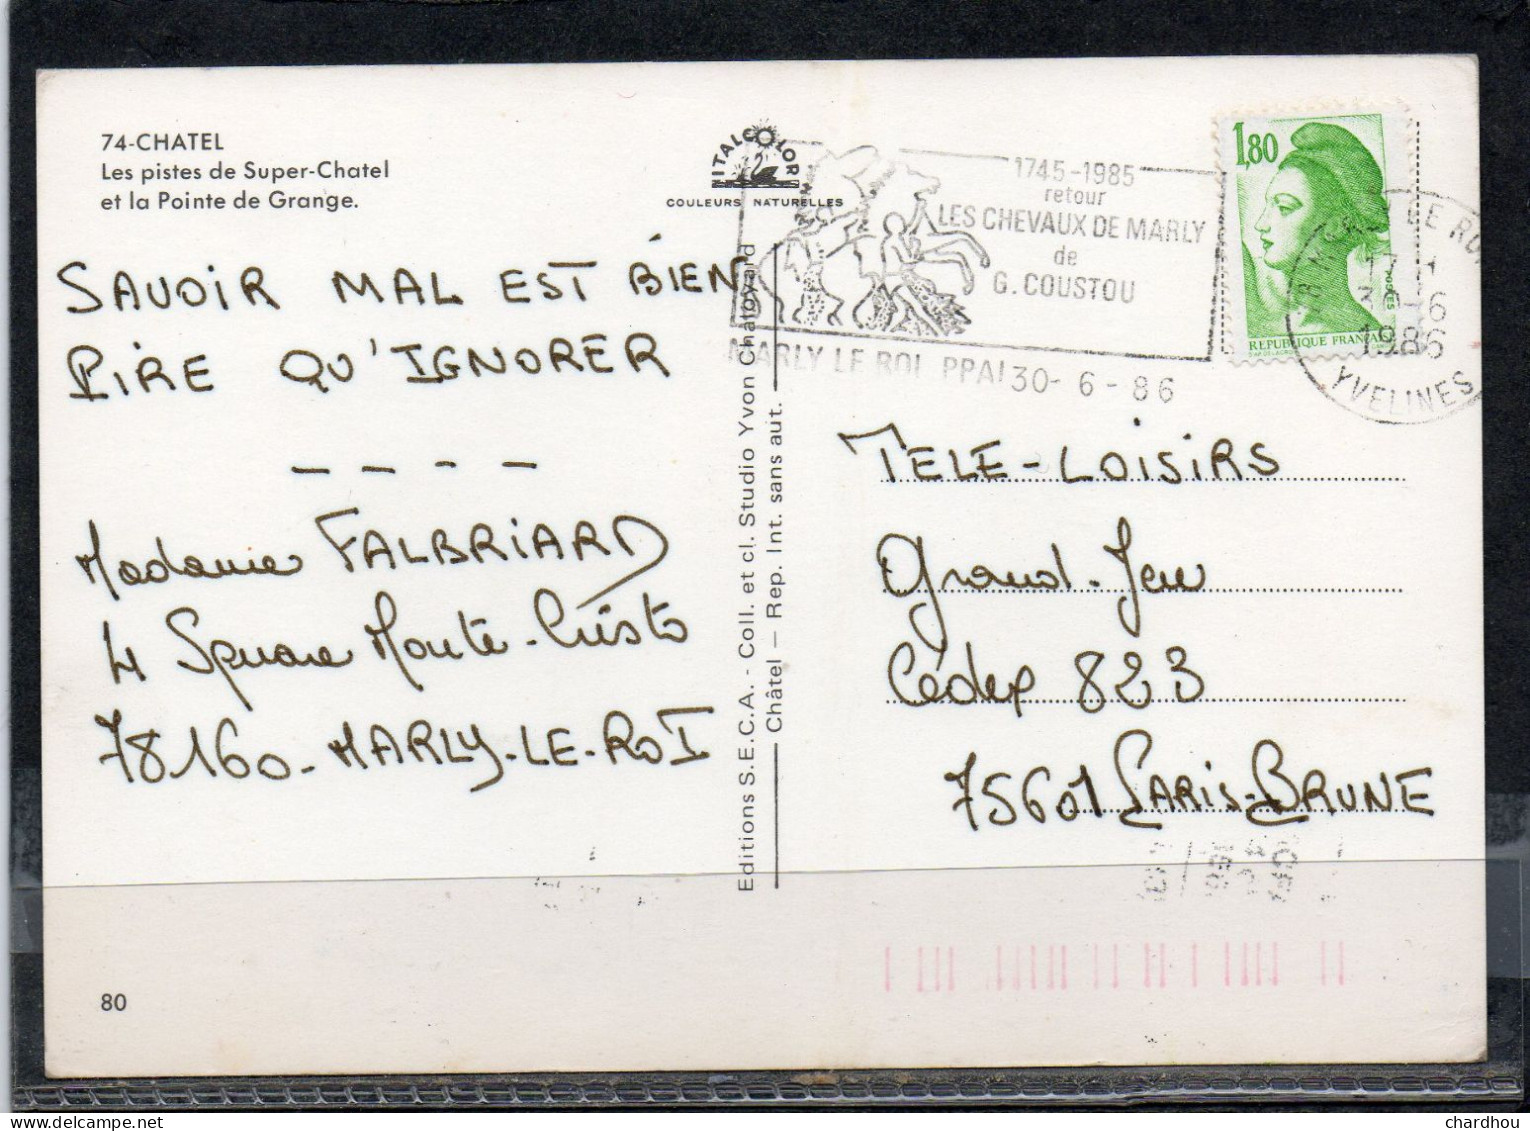 74-CHATEL
Les pistes de Super-Chatel
et la Pointe de Grange.
ITALCOLOR
COULEURS NATURELLES
1745-1985
retour
LES CHEVAUX DE MARLY
de
G. COUSTOU
MARLY LE ROI PPAL 30-6-86
1,80
REPUBLIQUE FRANCAISE
MARLY LE ROI
17 H
30-6
1986
YVELINES
SAVOIR MAL EST BIEN
PIRE QU'IGNORER
- - - -
Madame FALBRIARD
4 Square Monte-Cristo
78160-MARLY-LE-ROI
Editions S.E.C.A. - Coll. et cl. Studio Yvon Chatovard
Châtel – Rep. Int. sans aut.
TELE-LOISIRS
Grand-Jeu
Cédex 823
75601 PARIS-BRUNE
80
delcampe.net
chardhou